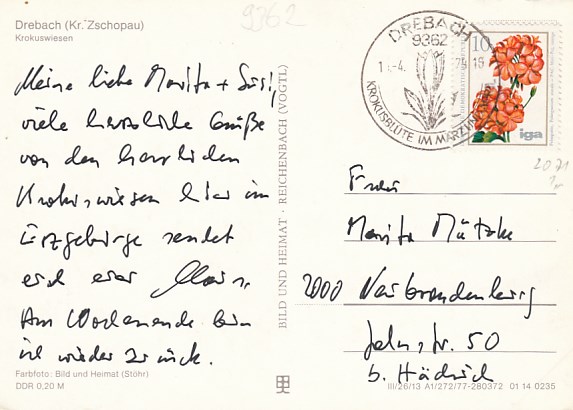 Drebach (Kr. Zschopau)
Krokuswiesen
9362
Meine liebe Marita + Susi,
viele herzliche Grüße
von den herrlichen
Krokuswiesen hier im
Erzgebirge sendet
euch euer
Am Wochenende bin
ich wieder zurück.
Farbfoto: Bild und Heimat (Stöhr)
DDR 0,20 M
BILD UND HEIMAT · REICHENBACH (VOGTL)
DREBACH
9362
KROKUSBLÜTE IM MÄRZ
10
iga
2071
Frau
Marita Mützke
2000 Neubrandenburg
Jahnstr. 50
b. Hädrich
III/26/13 A1/272/77-280372 01 14 0235